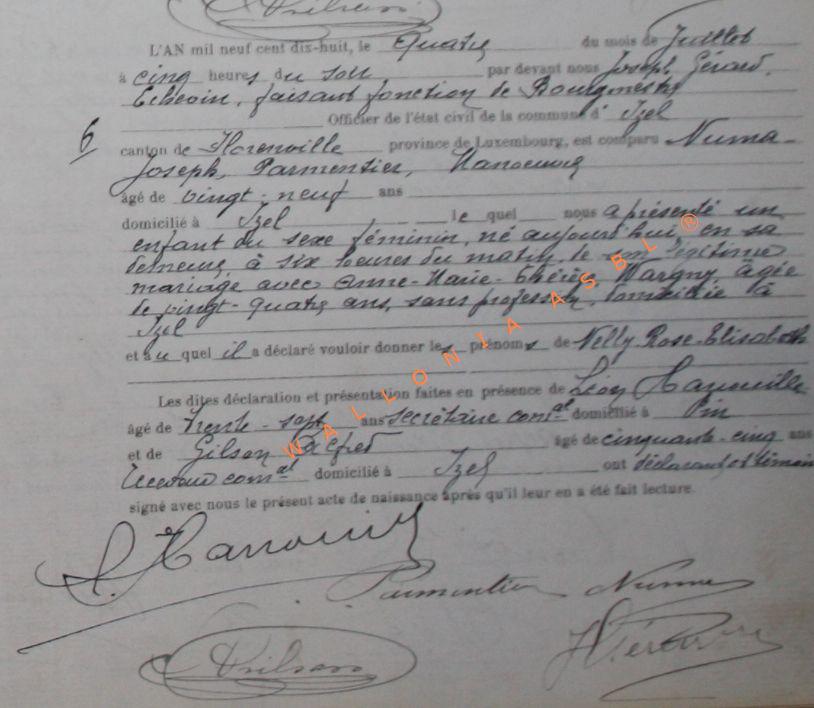 L'AN mil neuf cent dix-huit, le Quatre du mois de Juillet
à cinq heures du soir, par devant nous Joseph Gérard,
Echevin, faisant fonction de Bourgmestre
Officier de l'état civil de la commune d' Izel
6
canton de Florenville province de Luxembourg, est comparu Numa-
Joseph, Parmentier, Manoeuvre
âgé de vingt-neuf ans
domicilié à Izel le quel nous a présenté un
enfant du sexe féminin, né aujourd'hui en sa
demeure, à six heures du matin, de son légitime
mariage avec Anne-Marie-Thérèse Margny, âgée
de vingt-quatre ans, sans profession, domiciliée à
Izel
et au quel il a déclaré vouloir donner les prénoms de Nelly-Rose-Elisabeth
Les dites déclaration et présentation faites en présence de Léon
âgé de trente-sept ans secrétaire comal domicilié à Pin
et de Gilson Alfred âgé de cinquante-cinq ans
receveur comal domicilié à Izel ont déclarant et témoin
signé avec nous le présent acte de naissance après qu'il leur en a été fait lecture.
WALLONIA ASBL ®
Parmentier Numa